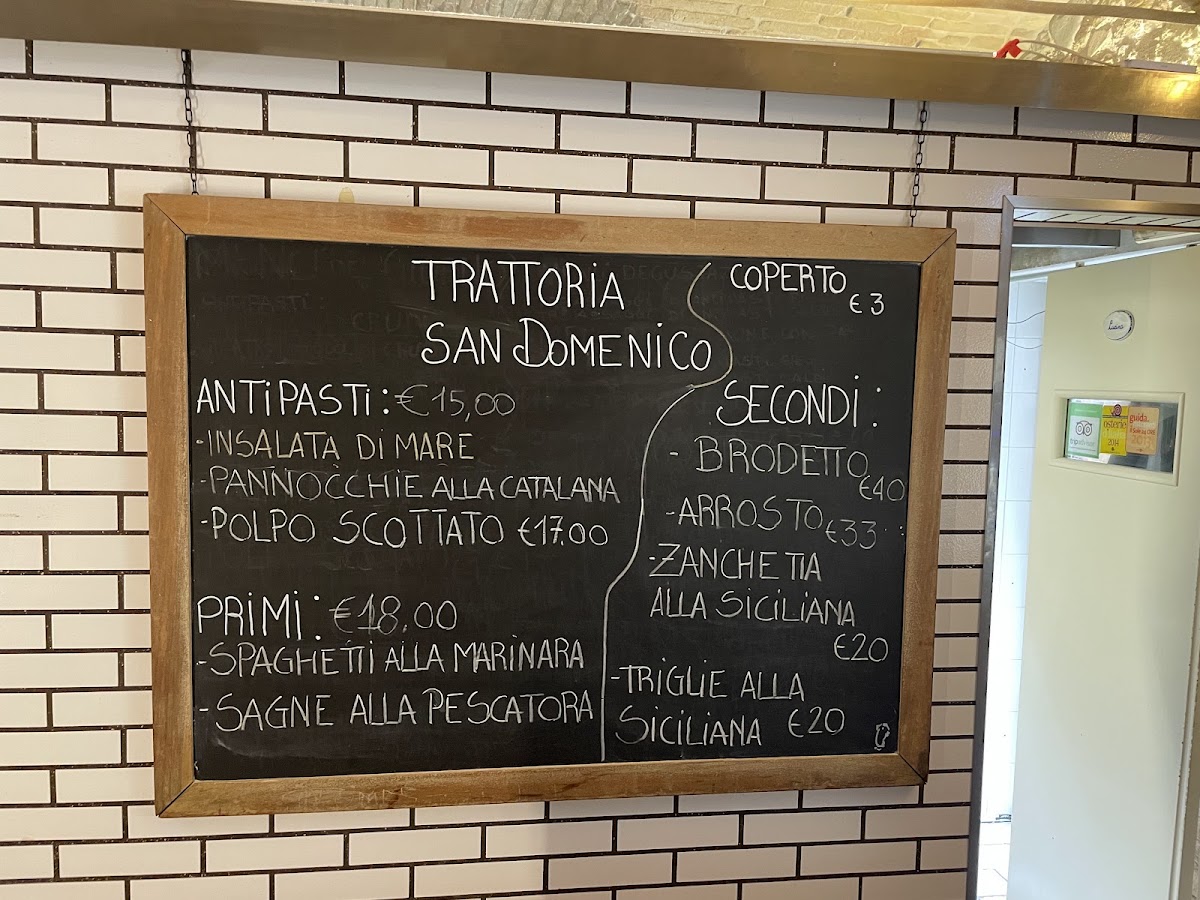 TRATTORIA
SAN DOMENICO
ANTIPASTI: €15,00
-INSALATA DI MARE
-PANNOCCHIE ALLA CATALANA
-POLPO SCOTTATO €17.00
PRIMI: €18.00
-SPAGHETTI ALLA MARINARA
-SAGNE ALLA PESCATORA
COPERTO
€3
SECONDI:
- BRODETTO
€40
-ARROSTO €33
-ZANCHETTA
ALLA SICILIANA
€20
-TRIGLIE ALLA
SICILIANA €20
osterie
guida